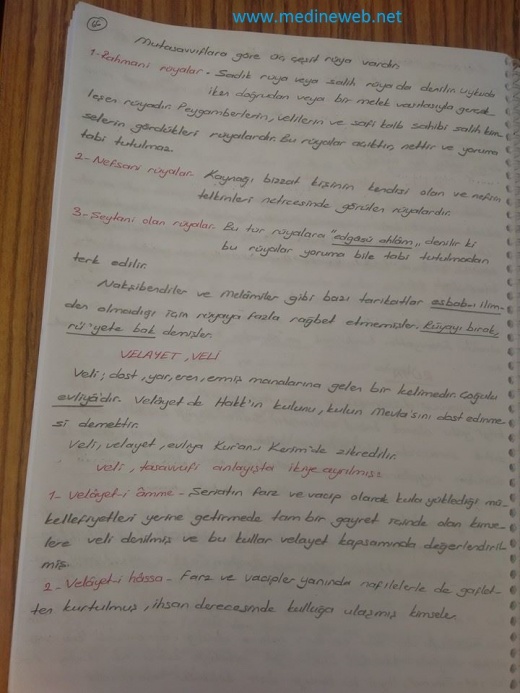 www.medineweb.net
Mutasavvıflara göre üç çeşit rüya vardır.
1- Rahmani rüyalar. Sadık rüya veya salih rüya da denilir. Uykuda
iken doğrudan veya bir melek vasıtasıyla gerçek-
leşen rüyadır. Peygamberlerin, velilerin ve safi kalb sahibi salih kim-
selerin gördükleri rüyalardır. Bu rüyalar açıktır, nettir ve yoruma
tabi tutulmaz.
2- Nefsani rüyalar. Kaynağı bizzat kişinin kendisi olan ve nefsin
telkinleri neticesinde görülen rüyalardır.
3- Şeytani olan rüyalar. Bu tür rüyalara "edgâsü ahlâm" denilir ki
bu rüyalar yoruma bile tabi tutulmadan
terk edilir.
Nakşibendiler ve Melâmiler gibi bazı tarikatlar esbab-ı ilim-
den olmadığı için rüyaya fazla rağbet etmemişler. Rüyayı bırak,
rü'yete bak demişler.
VELAYET, VELİ
Veli; dost, yar, eren, ermiş manalarına gelen bir kelimedir. Çoğulu
evliyâdır. Velâyet de Hakk'ın kulunu, kulun Mevla'sını dost edinme-
si demektir.
Veli, velayet, evliya Kur'an-ı Kerim'de zikredilir.
Veli, tasavvufi anlayışta ikiye ayrılmış:
1- Velâyet-i âmme - Şeriatın farz ve vacip olarak kula yüklediği mü-
kellefiyetleri yerine getirmede tam bir gayret içinde olan kimse-
lere veli denilmiş ve bu kullar velayet kapsamında değerlendiril-
miş.
2- Velâyet-i hâssa - Farz ve vacipler yanında nafilelerle de gaflet-
ten kurtulmuş, ihsan derecesinde kulluğa ulaşmış kimseler.